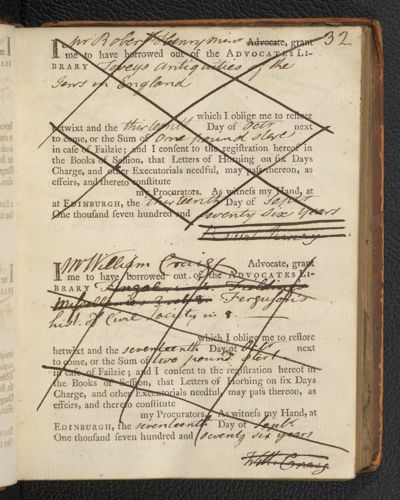 32
I Mr Robert Advocate, grant
me to have borrowed out of the ADVOCATES LI-
BRARY Toveys Antiquities of the
Jews in England
which I oblige me to restore
betwixt and the thirteenth Day of Octr next
to come, or the Sum of One pound sterl
in case of Failzie; and I consent to the registration hereof in
the Books of Session, that Letters of Horning on six Days
Charge, and other Executorials needful, may pass thereon, as
effeirs, and thereto constitute
my Procurators. As witness my Hand, at
at EDINBURGH, the thirteenth Day of Septr
One thousand seven hundred and seventy Six Years
I Mr William Craig Advocate, grant
me to have borrowed out of the ADVOCATES LI-
BRARY
Ferguson's
hist. of Civil Society in 8.
which I oblige me to restore
betwixt and the seventeenth Day of Octr next
to come, or the Sum of two pound sterl
in case of Failzie; and I consent to the registration hereof in
the Books of Session, that Letters of Horning on six Days
Charge, and other Executorials needful, may pass thereon, as
effeirs, and thereto constitute
my Procurators. As witness my Hand, at
EDINBURGH, the seventeenth Day of Septr
One thousand seven hundred and seventy six years
Will: Craig